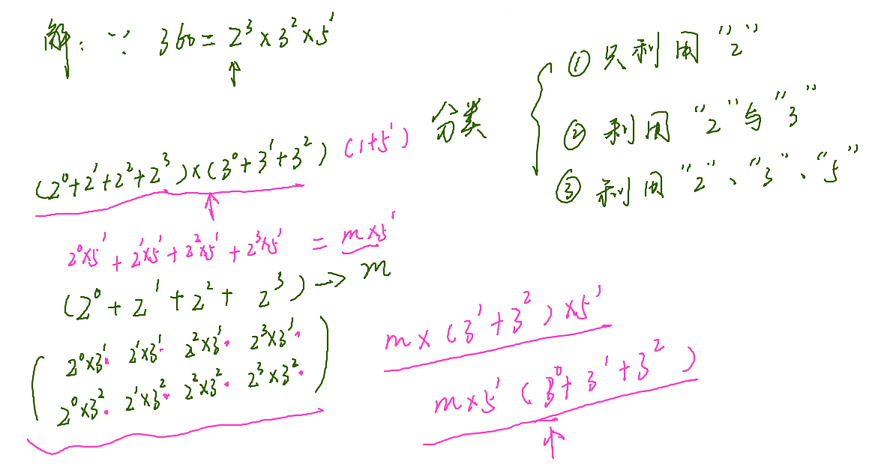 解：∵ 360=2³×3²×5¹
分类
① 只利用“2”
② 利用“2”与“3”
③ 利用“2”、“3”、“5”
(2⁰+2¹+2²+2³)×(3⁰+3¹+3²)(1+5¹)
2⁰×5¹+2¹×5¹+2²×5¹+2³×5¹=m×5¹
(2⁰+2¹+2²+2³)→m
2⁰×3¹· 2¹×3¹· 2²×3¹· 2³×3¹·
2⁰×3²· 2¹×3²· 2²×3²· 2³×3²·
m×(3¹+3²)×5¹
m×5¹(3⁰+3¹+3²)